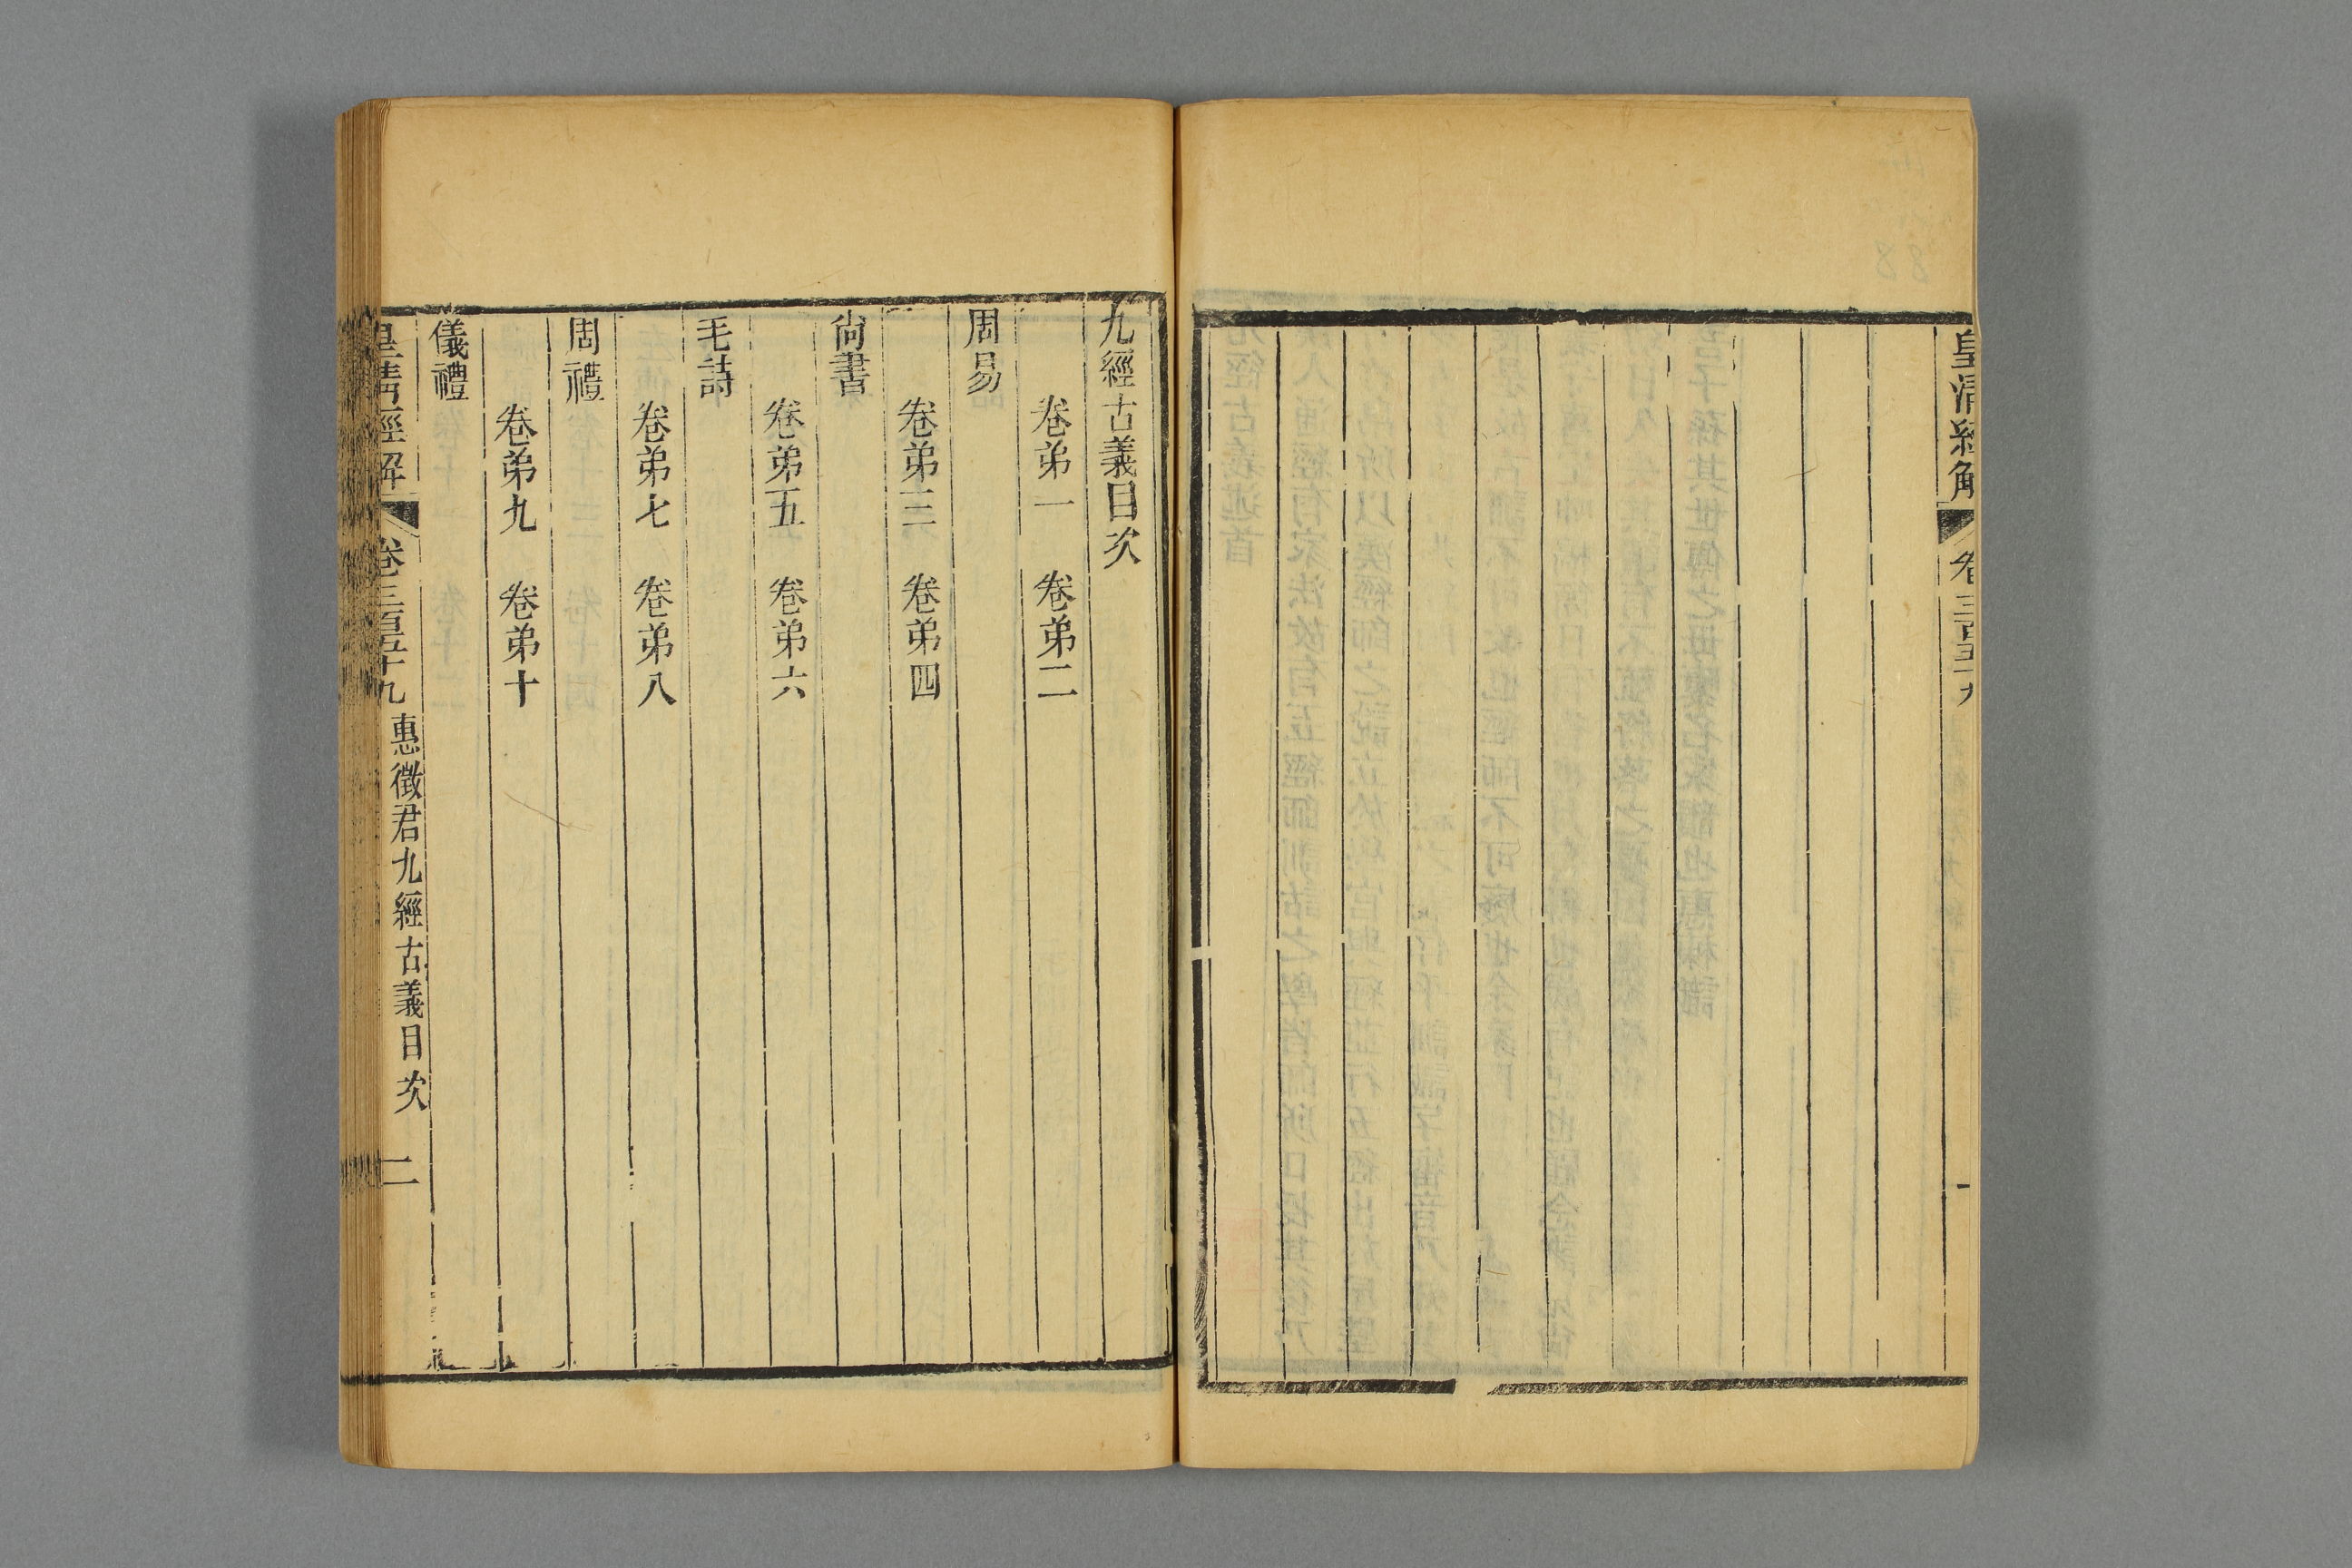 皇清經解 卷三百五十九 一
九經古義目次
卷弟一 卷弟二
周易
卷弟三 卷弟四
尙書
卷弟五 卷弟六
毛詩
卷弟七 卷弟八
周禮
卷弟九 卷弟十
儀禮
皇清經解 卷三百五十九 惠徵君九經古義目次 二